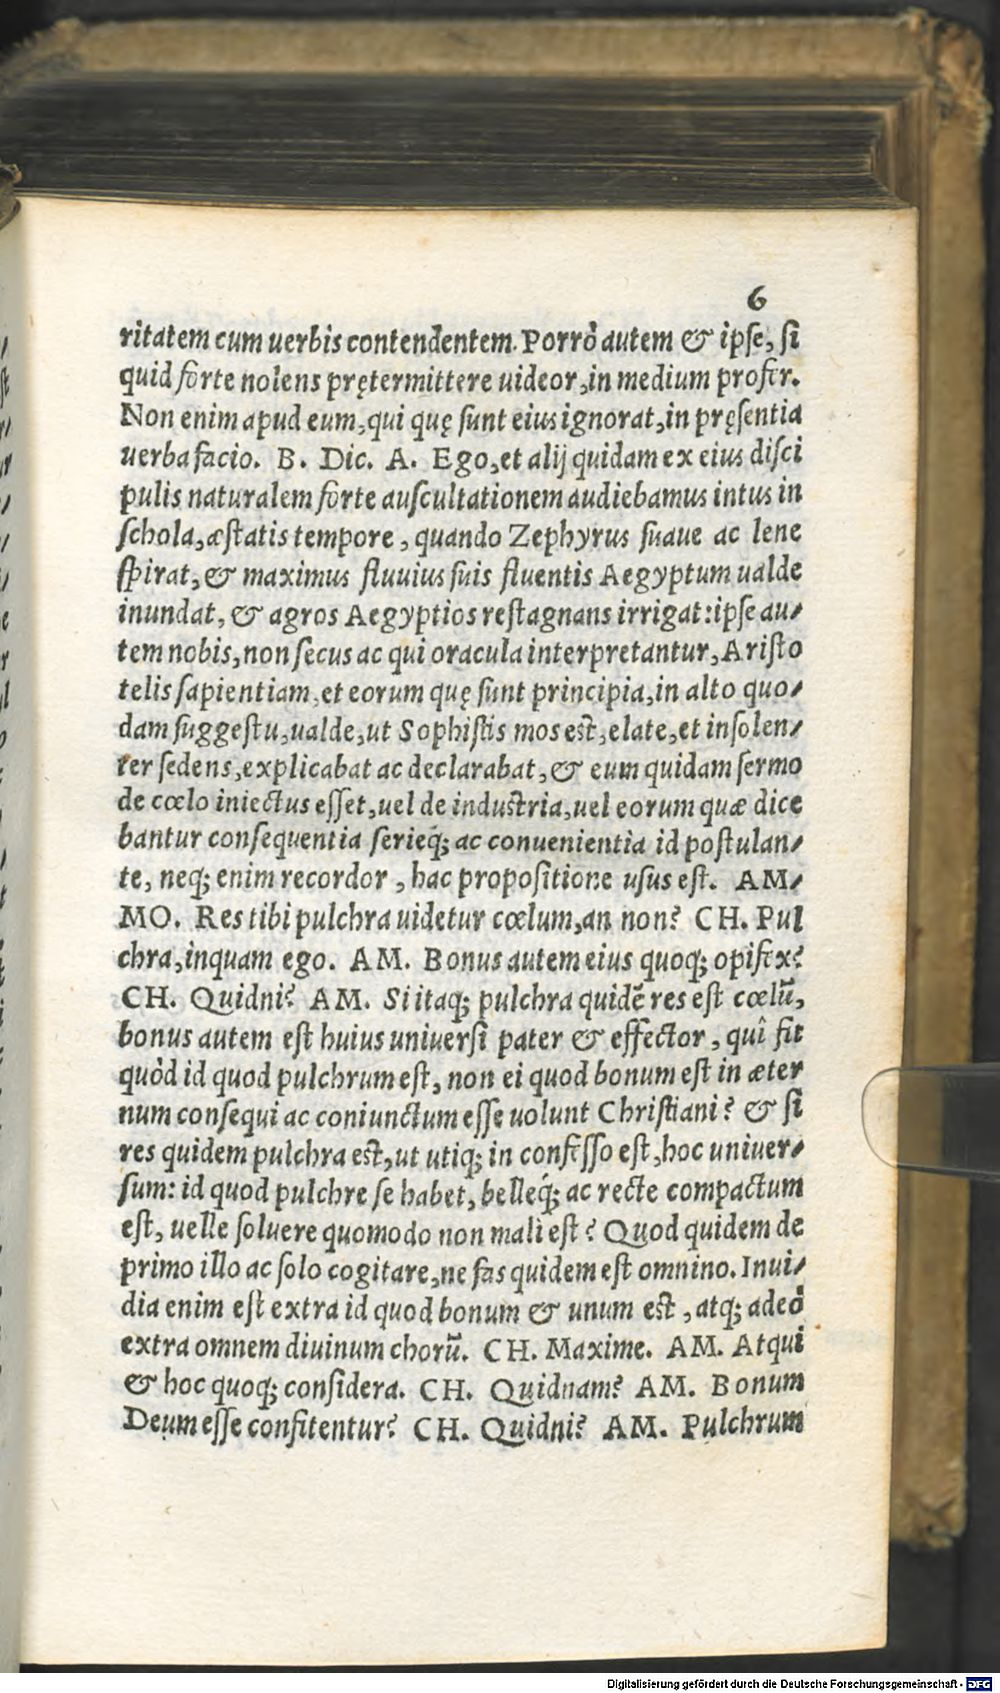 6
ritatem cum uerbis contendentem. Porrò autem & ipſe, ſi
quid forte nolens prętermittere uideor, in medium profer.
Non enim apud eum, qui quę ſunt eius ignorat, in pręſentia
uerba facio. B. Dic. A. Ego, et alij quidam ex eius diſci
pulis naturalem forte auſcultationem audiebamus intus in
ſchola, æſtatis tempore, quando Zephyrus ſuaue ac lene
ſpirat, & maximus fluuius ſuis fluentis Aegyptum ualde
inundat, & agros Aegyptios reſtagnans irrigat: ipſe au⸗
tem nobis, non ſecus ac qui oracula interpretantur, Ariſto
telis ſapientiam, et eorum quę ſunt principia, in alto quo⸗
dam ſuggeſtu, ualde, ut Sophiſtis mos est, elate, et inſolen⸗
ter ſedens, explicabat ac declarabat, & eum quidam ſermo
de cœlo iniectus eſſet, uel de induſtria, uel eorum quæ dice
bantur conſequentia ſerieq́; ac conuenientia id poſtulan⸗
te, neq; enim recordor, hac propoſitione uſus eſt. AM⸗
MO. Res tibi pulchra uidetur cœlum, an non? CH. Pul
chra, inquam ego. AM. Bonus autem eius quoq; opifex?
CH. Quidni? AM. Si itaq; pulchra quidē res eſt cœlū,
bonus autem eſt huius uniuerſi pater & effector, quî fit
quòd id quod pulchrum eſt, non ei quod bonum eſt in æter
num conſequi ac coniunctum eſſe uolunt Chriſtiani? & ſi
res quidem pulchra est, ut utiq; in confeſſo eſt, hoc uniuer⸗
ſum: id quod pulchre ſe habet, belleq́; ac recte compactum
eſt, uelle ſoluere quomodo non mali eſt? Quod quidem de
primo illo ac ſolo cogitare, ne fas quidem eſt omnino. Inui⸗
dia enim eſt extra id quod bonum & unum est, atq; adeò
extra omnem diuinum chorū. CH. Maxime. AM. Atqui
& hoc quoq; conſidera. CH. Quidnam? AM. Bonum
Deum eſſe confitentur? CH. Quidni? AM. Pulchrum
Digitalisierung gefördert durch die Deutsche Forschungsgemeinschaft - DFG